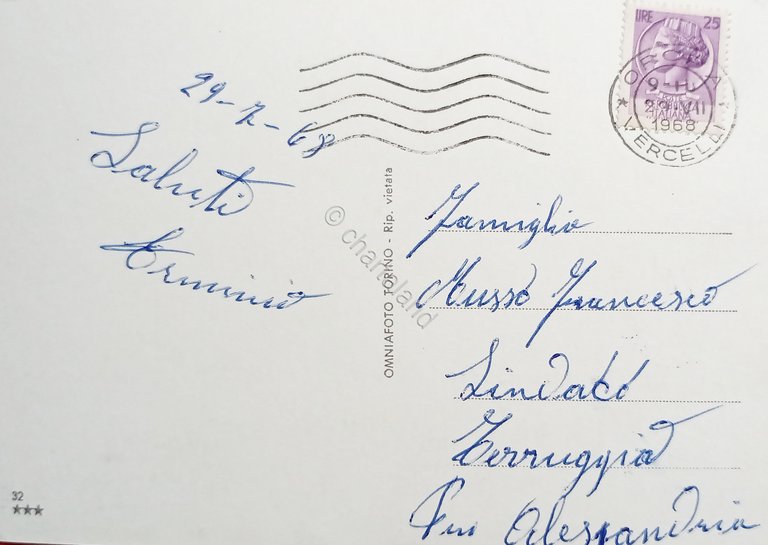 LIRE 25
POSTE ITALIANE
OROPA
9-H.
29 VII
1968
* VERCELLI *
29-7-68
Saluti
Erminio
Famiglia
Musso Francesco
Sindaco
Terruggia
Alessandria
OMNIAFOTO TORINO - Rip. vietata
© charlaland
32
★★★